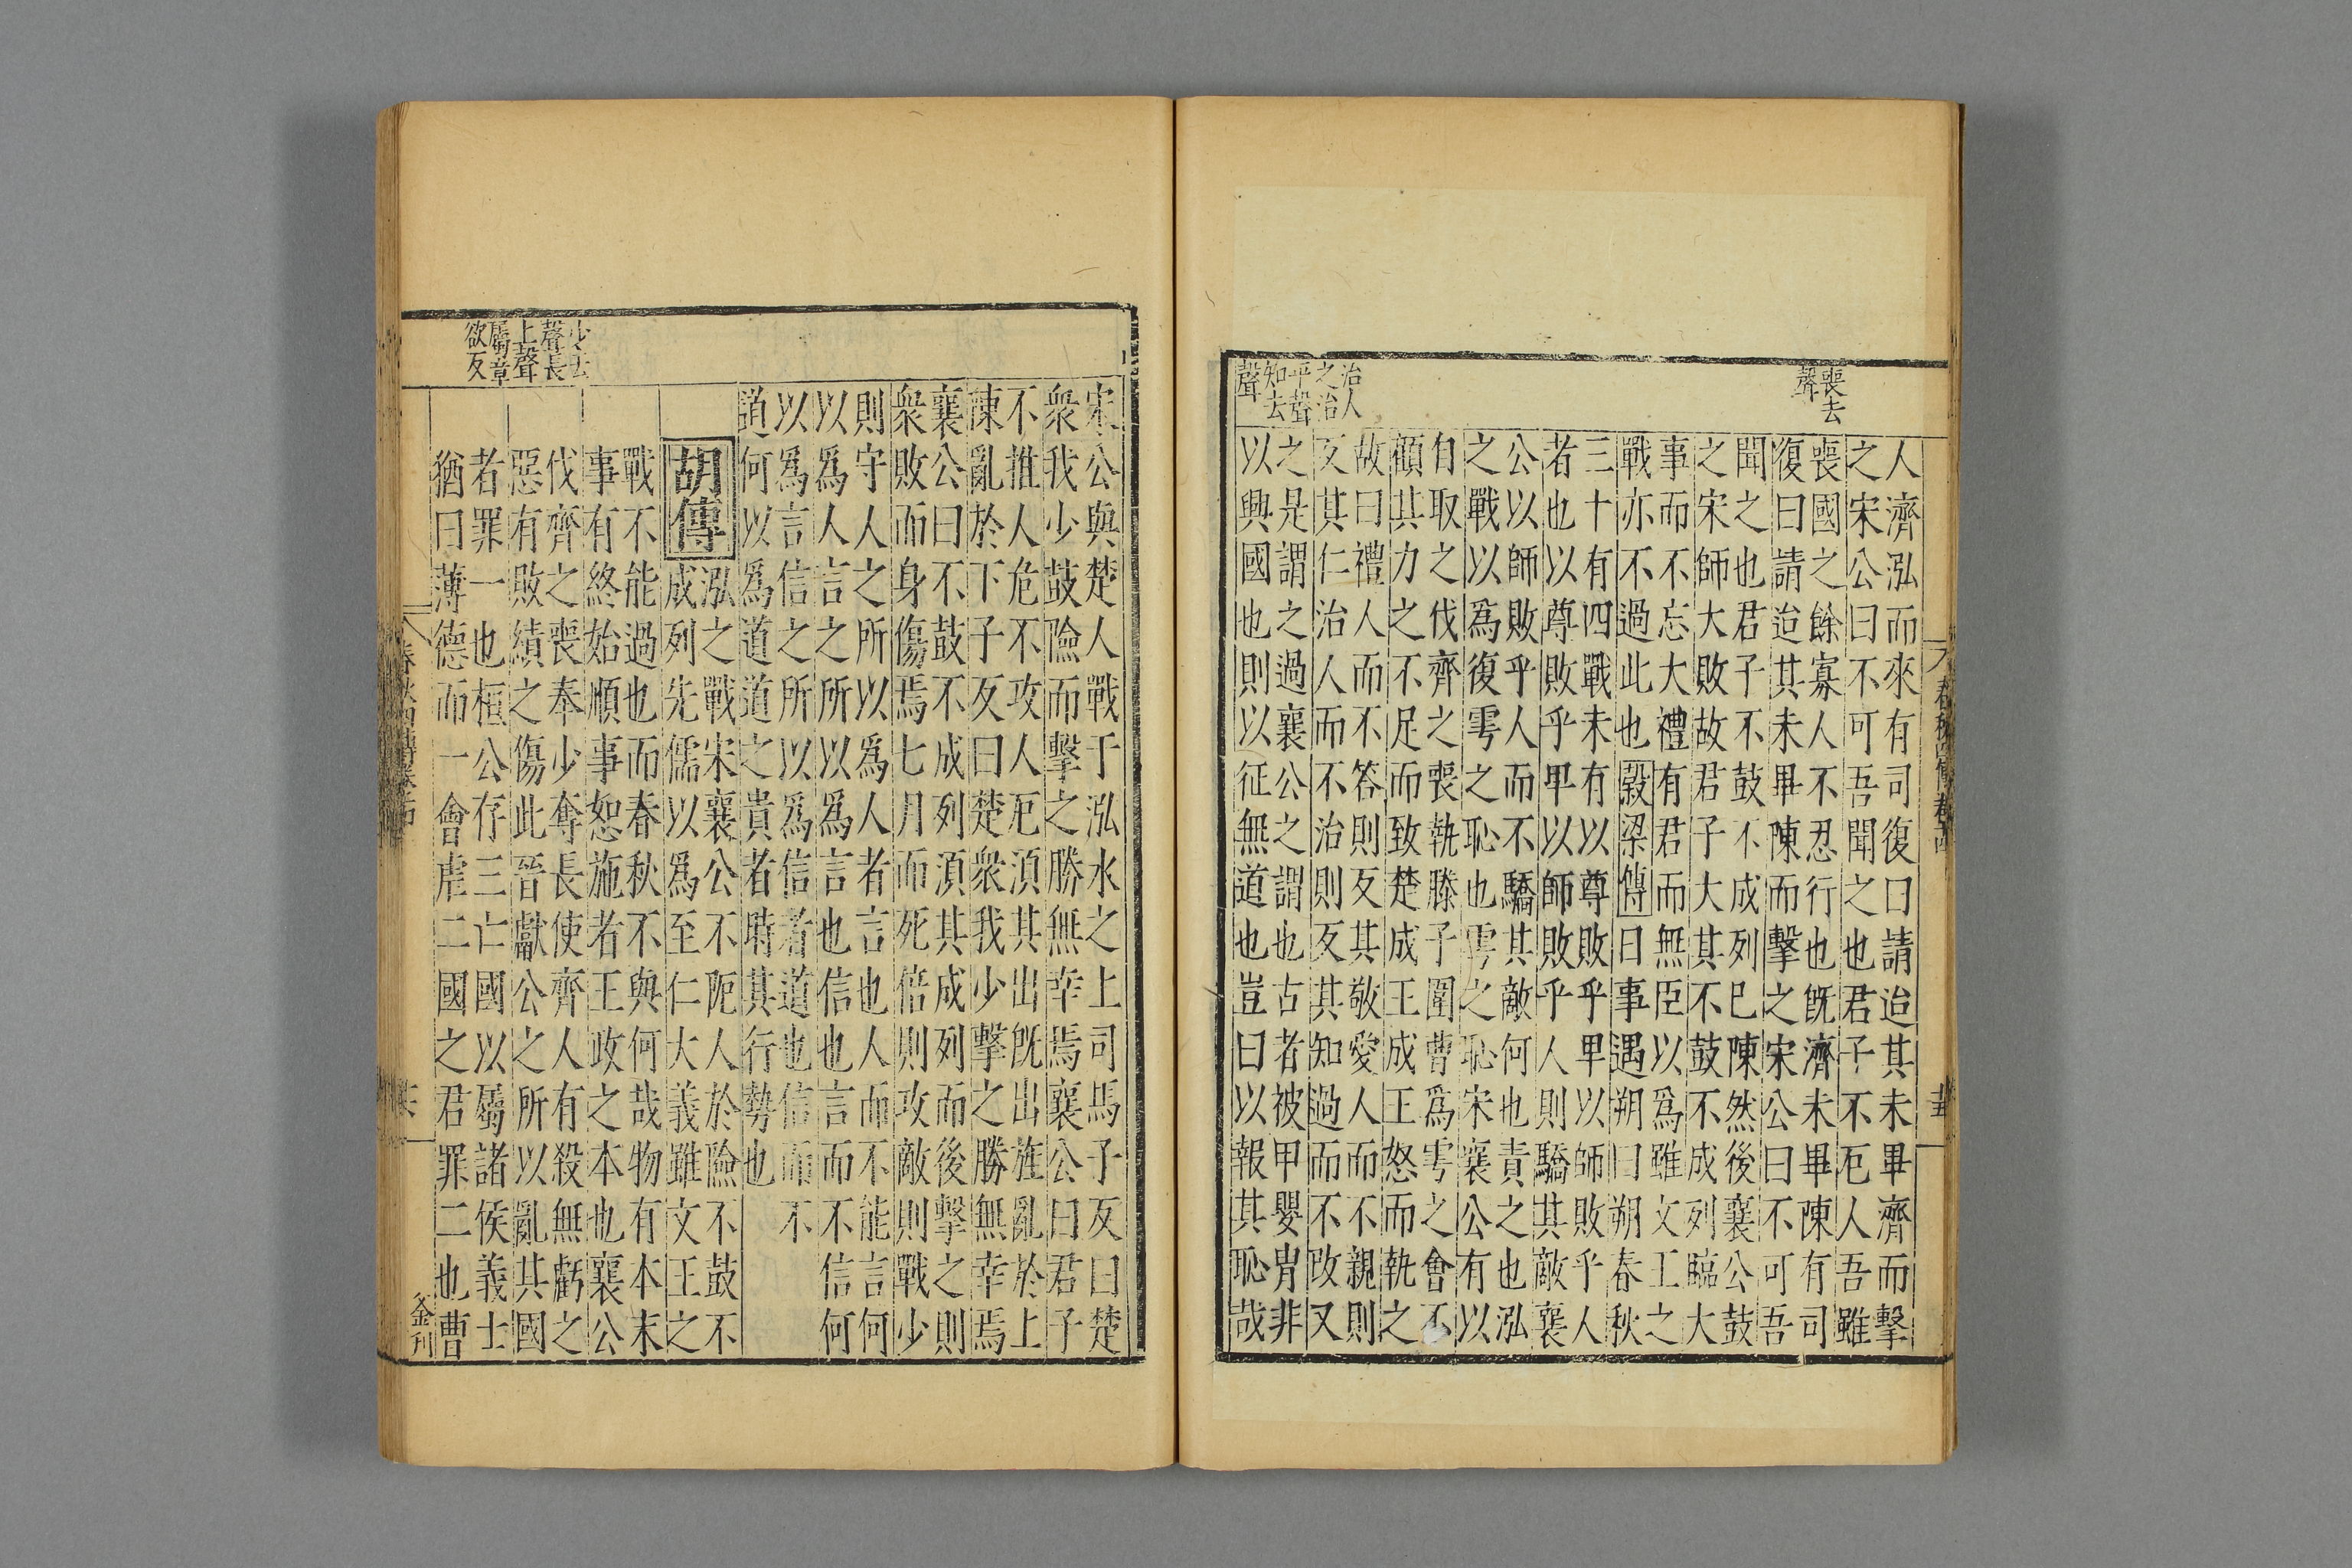 喪去
聲
治人
之治
平聲
知去
聲
人濟泓而來有司復曰請迨其未畢濟而擊
之宋公曰不可吾聞之也君子不厄人吾雖
喪國之餘寡人不忍行也旣濟未畢陳有司
復曰請迨其未畢陳而擊之宋公曰不可吾
聞之也君子不鼓不成列已陳然後襄公鼓
之宋師大敗故君子大其不鼓不成列臨大
事而不忘大禮有君而無臣以爲雖文王之
戰亦不過此也穀梁傳日事遇朔曰朔春秋
三十有四戰未有以尊敗乎卑以師敗乎人
者也以尊敗乎卑以師敗乎人則驕其敵襄
公以師敗乎人而不驕其敵何也責之也泓
之戰以爲復雩之恥也雩之恥宋襄公有以
自取之伐齊之喪執滕子圍曹爲雩之會不
顧其力之不足而致楚成王成王怒而執之
故曰禮人而不答則反其敬愛人而不親則
反其仁治人而不治則反其知過而不改又
之是謂之過襄公之謂也古者被甲嬰冑非
以興國也則以征無道也豈曰以報其恥哉
少去
聲長
上聲
屬章
欲反
宋公與楚人戰于泓水之上司馬子反曰楚
衆我少鼓險而擊之勝無幸焉襄公曰君子
不推人危不攻人厄須其出旣出旌亂於上
陳亂於下子反曰楚衆我少擊之勝無幸焉
襄公曰不鼓不成列須其成列而後擊之則
衆敗而身傷焉七月而死倍則攻敵則戰少
則守人之所以爲人者言也人而不能言何
以爲人言之所以爲言也信也言而不信何
以爲言信之所以爲信者道也信而不
道何以爲道道之貴者時其行勢也
胡傳
泓之戰宋襄公不阨人於險不鼓不
成列先儒以爲至仁大義雖文王之
戰不能過也而春秋不與何哉物有本末
事有終始順事恕施者王政之本也襄公
伐齊之喪奉少奪長使齊人有殺無虧之
惡有敗績之傷此晉獻公之所以亂其國
者罪一也桓公存三亡國以屬諸侯義士
猶曰薄德而一會虐二國之君罪二也曹
釜刊